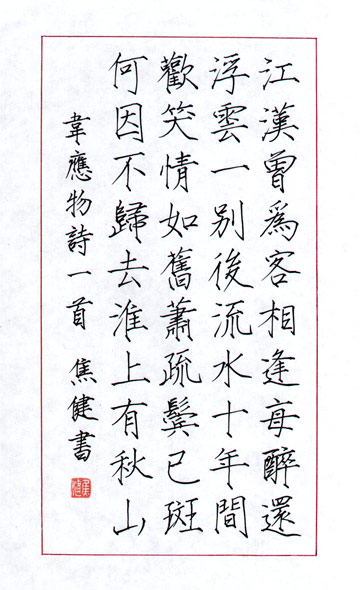 江漢曾爲客相逢每醉還
浮雲一別後流水十年間
歡笑情如舊蕭疏鬢已斑
何因不歸去淮上有秋山
韋應物詩一首 焦健書